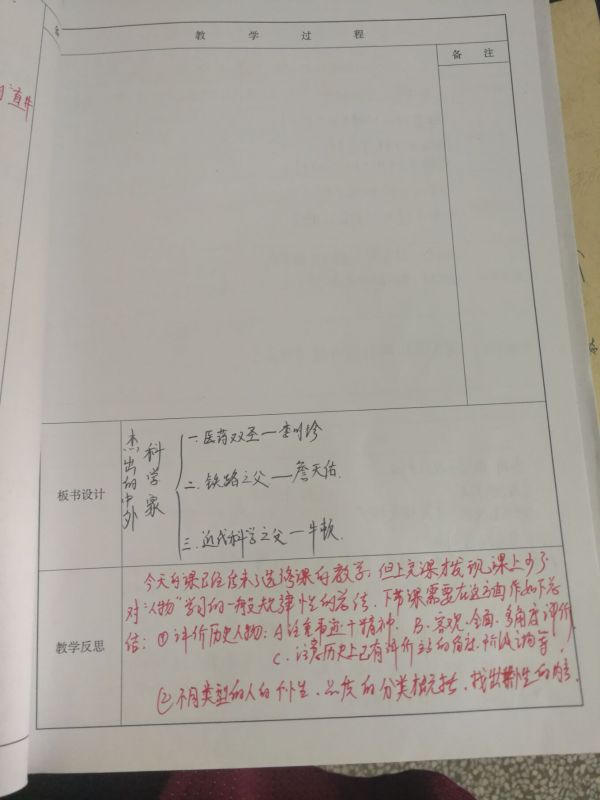 教 学 过 程
备 注
板书设计
杰出的中外
科学家
一、医药双圣—李时珍
二、铁路之父—詹天佑.
三、近代科学之父—牛顿.
教学反思
今天的课已经结束了选修课的教学,但上完课才发现,课上少了
对"人物"学习的一般规律性的总结,下节课需要在这方面作如下总
结:①评价历史人物:A注重事迹十精神. B.客观、全面、多角度评价
C.注意历史上已有评价立的角度.阶级
②不同类型的人的个性、 的分类概括,找出 性的内容.